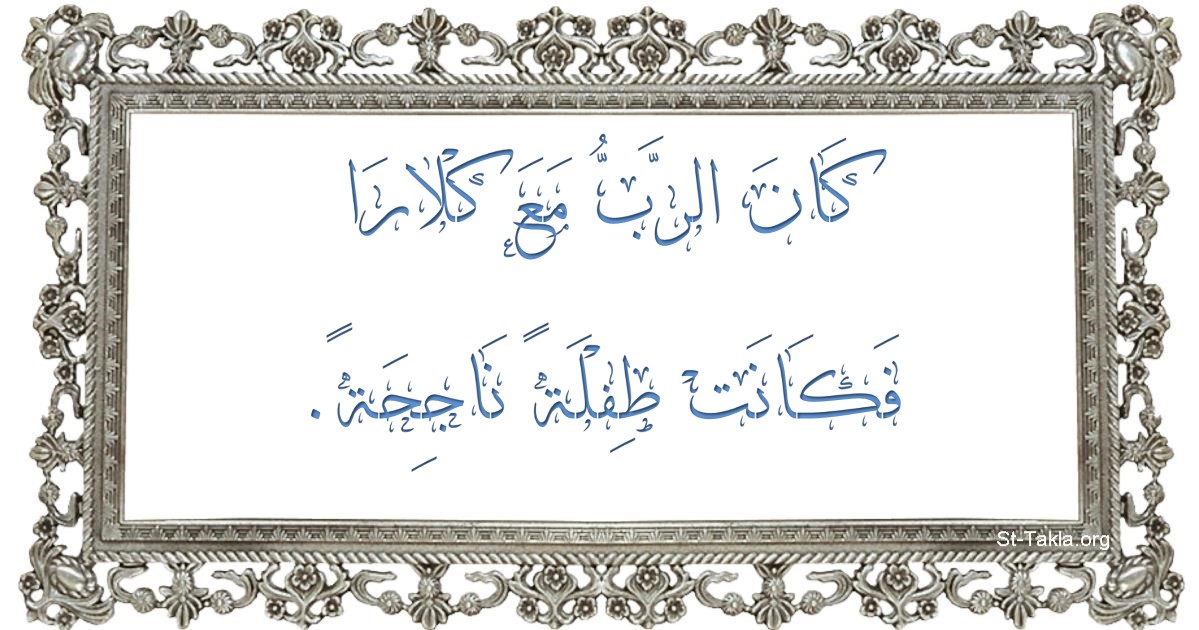 كَانَ الرَّبُّ مَعَ كْلَارَا
فَكَانَتْ طِفْلَةً نَاجِحَةً.
St-Takla.org